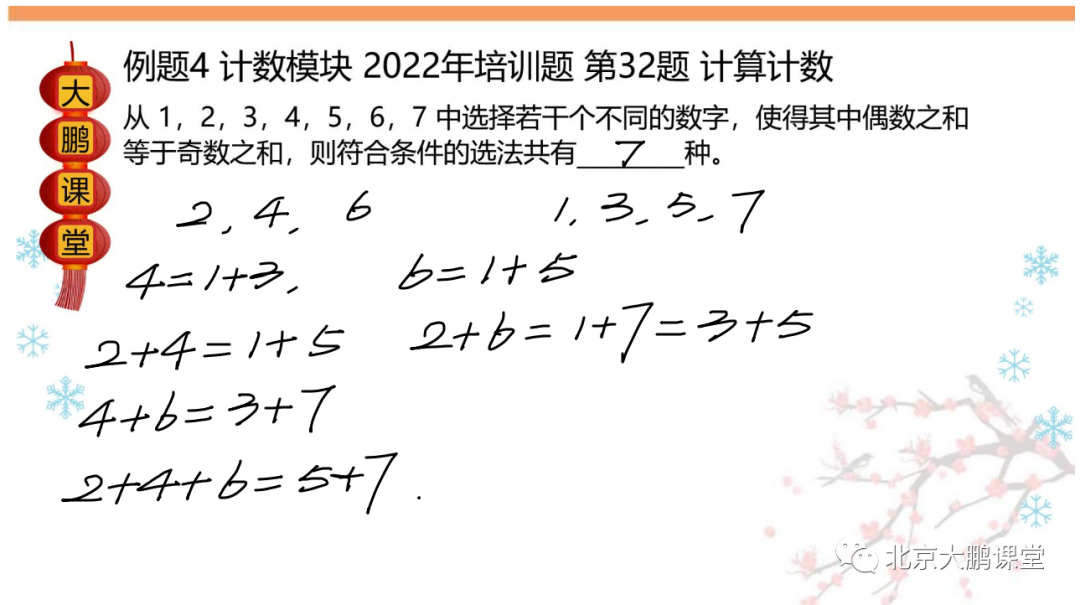 例题4 计数模块 2022年培训题 第32题 计算计数
大
鹏
课
堂
从 1，2，3，4，5，6，7 中选择若干个不同的数字，使得其中偶数之和
等于奇数之和，则符合条件的选法共有____7____种。
2, 4, 6 1, 3, 5, 7
4=1+3, 6=1+5
2+4=1+5 2+6=1+7=3+5
4+6=3+7
2+4+6=5+7.
北京大鹏课堂